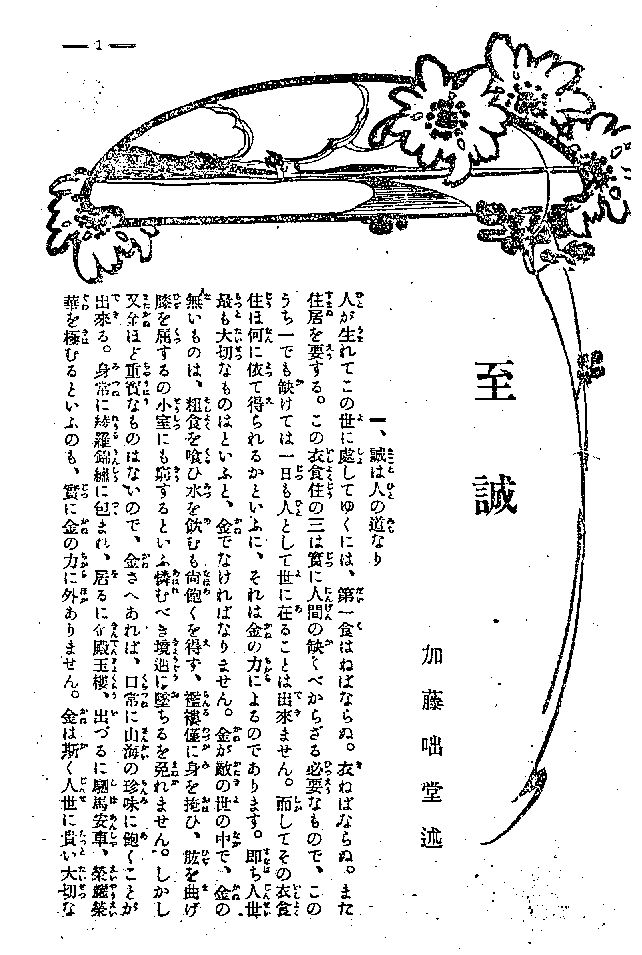 — 1 —
至誠
加藤咄堂述
一、誠は人の道なり
人が生れてこの世に處してゆくには、第一食はねばならぬ。衣ねばならぬ。また
住居を要する。この衣食住の三は實に人間の缺くべからざる必要なもので、この
うち一でも缺けては一日も人として世に在ることは出來ません。而してその衣食
住は何に依て得られるかといふに、それは金の力によるのであります。即ち人世
最も大切なものはといふと、金でなければなりません。金が敵の世の中で、金の
無いものは、粗食を喰ひ水を飮むも尙飽くを得ず、襤褸僅に身を掩ひ、肱を曲げ
膝を屈するの小室にも窮するといふ憐むべき境遇に墜ちるを免れません。しかし
又金ほど重寳なものはないので、金さへあれば、口常に山海の珍味に飽くことが
出來る。身常に綾羅錦繡に包まれ、居るに金殿玉樓、出づるに駟馬安車、榮耀榮
華を極むるといふのも、實に金の力に外ありません。金は斯く人世に貴い大切な